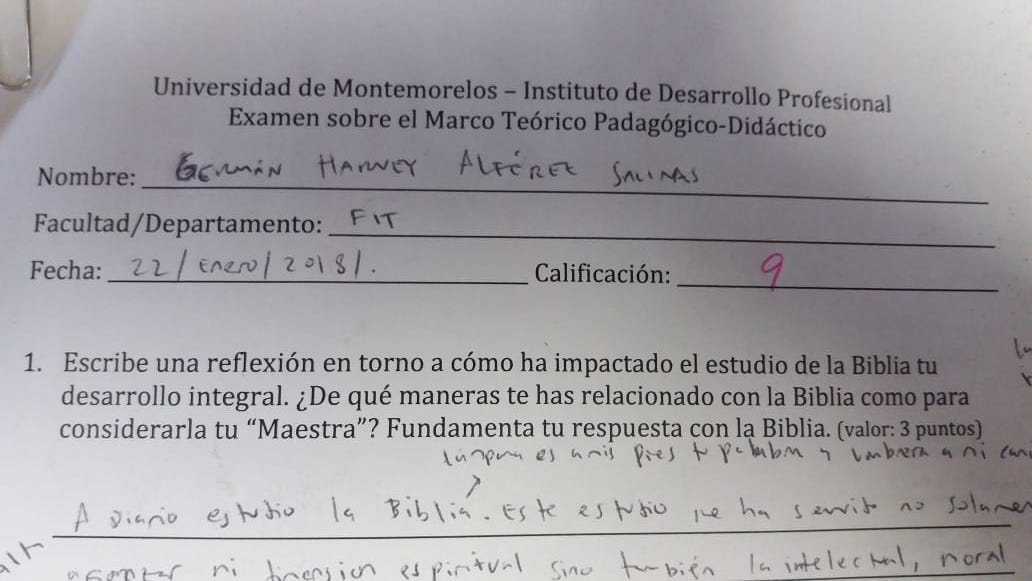 Universidad de Montemorelos – Instituto de Desarrollo Profesional
Examen sobre el Marco Teórico Padagógico-Didáctico
Nombre: GERMÁN HARVEY ALFÉREZ SALINAS
Facultad/Departamento: FIT
Fecha: 22/ENERO/2018/. Calificación: 9
1. Escribe una reflexión en torno a cómo ha impactado el estudio de la Biblia tu
desarrollo integral. ¿De qué maneras te has relacionado con la Biblia como para
considerarla tu “Maestra”? Fundamenta tu respuesta con la Biblia. (valor: 3 puntos)
Lámpara es a mis pies tu palabra y lumbrera a mi
A diario estudio la Biblia. Este estudio me ha servido no
mi dimension espiritual sino también la intelectual, moral